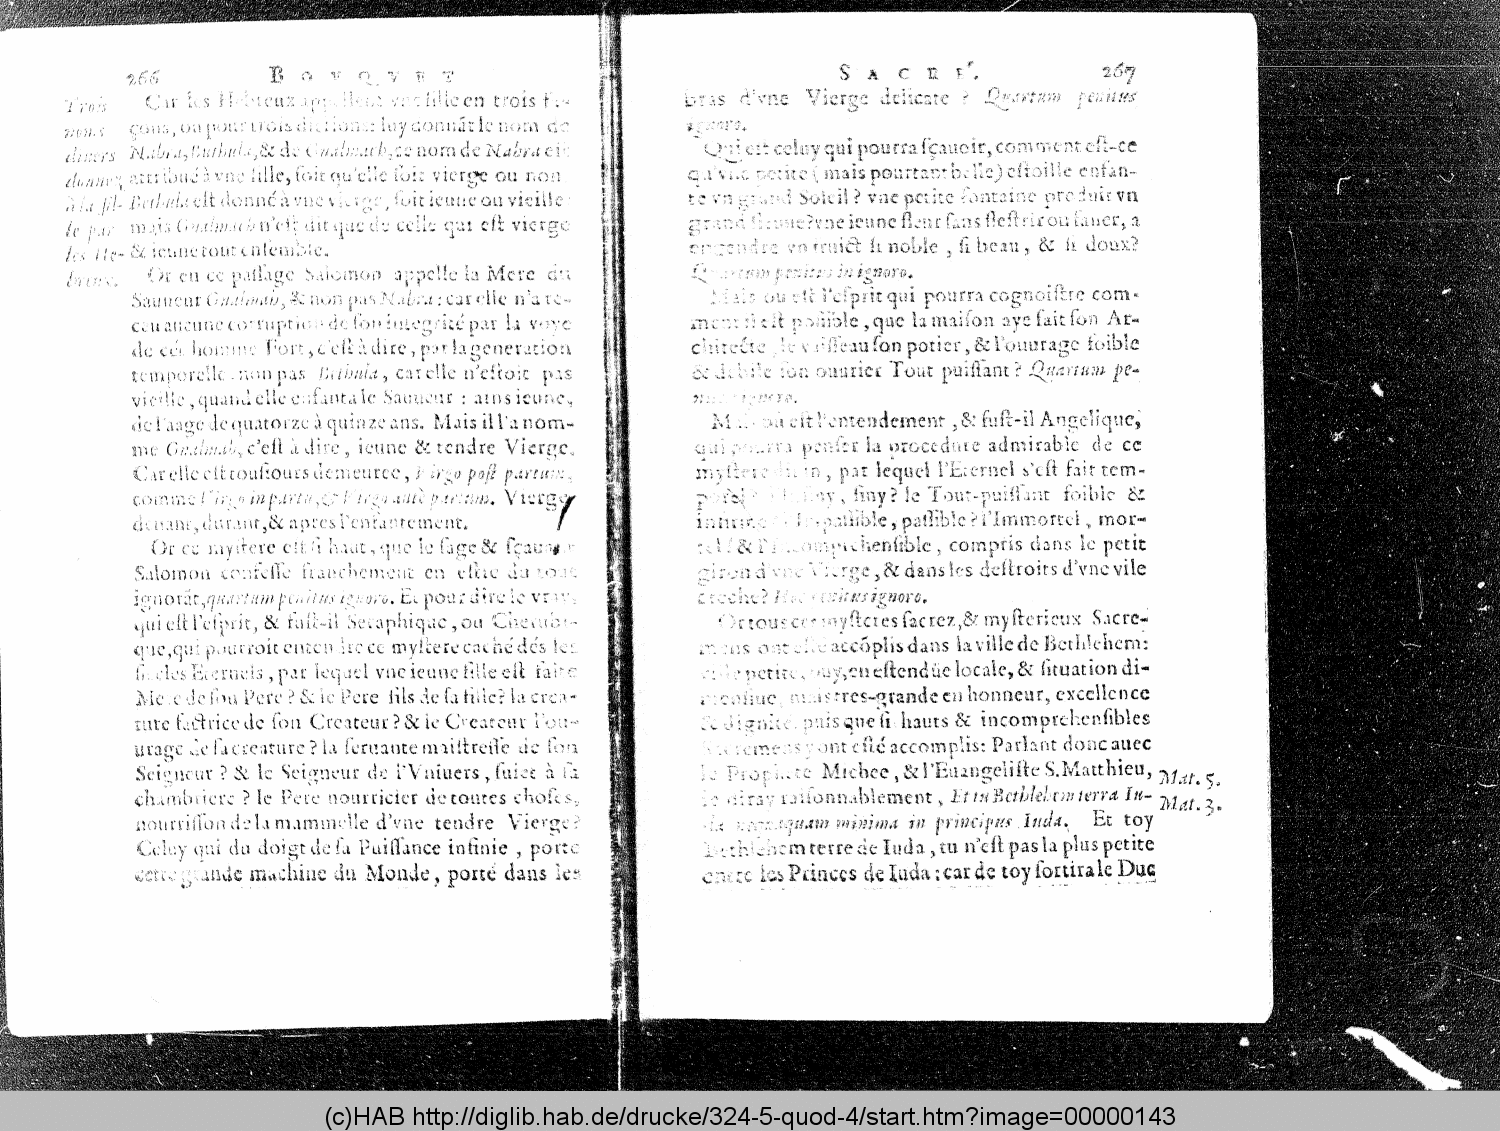 266 BOVQVET
Trois
noms
divers
donnez
à la fil-
le par
les He-
breux.
Car les Hebreux appellent vne fille en trois fa-
çons, ou pour trois dictions luy donnāt le nom de
Nabra, Bethula, & de Gnalmach, ce nom de Nabra est
attribué à vne fille, soit qu'elle soit vierge ou non
Bethula est donné à vne vierge, soit ieune ou vieille
mais Gnalmach n'est dit que de celle qui est vierge
& ieune tout ensemble.
Or en ce passage Salomon appelle la Mere du
Sauueur Gnalmah, & non pas Nabra: car elle n'a re-
ceu aucune corruption de son integrité par la voye
de cét homme Fort, c'est à dire, par la generation
temporelle, non pas Bethula, car elle n'estoit pas
vieille, quand elle enfanta le Sauueur: ains ieune,
de l'aage de quatorze à quinze ans. Mais il l'a nom-
mé Gnalmah, c'est à dire, ieune & tendre Vierge.
Car elle est tousiours demeuree, Virgo post partum,
comme Virgo in partu, & Virgo ante partum. Vierge
deuant, durant, & apres l'enfantement.
Or ce mystere est si haut, que le sage & sçauant
Salomon confesse franchement en estre du tout
ignorāt, quartum penitus ignoro. Et pour dire le vray,
qui est l'esprit, & fust-il Seraphique, ou Cherubi-
que, qui pourroit entendre ce mystere caché dés les
siecles Eternels, par lequel vne ieune fille est faite
Mere de son Pere? & le Pere fils de sa fille? la crea-
ture factrice de son Createur? & le Createur l'ou-
urage de sa creature? la seruante maistresse de son
Seigneur? & le Seigneur de l'Vniuers, suiet à sa
chambriere? le Pere nourricier de toutes choses,
nourrisson de la mammelle d'vne tendre Vierge?
Celuy qui du doigt de sa Puissance infinie, porte
cette grande machine du Monde, porté dans les
SACRÉ. 267
bras d'vne Vierge delicate? Quartum penitus
ignoro.
Qui est celuy qui pourra sçauoir, comment est-ce
qu'vne petite (mais pourtant belle) estoille enfan-
te vn grand Soleil? vne petite fontaine produit vn
grand fleuue? vne ieune fleur sans flestrir ou faner, a
engendré vn fruict si noble, si beau, & si doux?
Quartum penitus ignoro.
Mais ou est l'esprit qui pourra cognoistre com-
ment il est possible, que la maison aye fait son Ar-
chitecte, le vaisseau son potier, & l'ouurage foible
& debile son ouurier Tout puissant? Quartum pe-
nitus ignoro.
Mais où est l'entendement, & fust-il Angelique,
qui pourra penser la procedure admirable de ce
mystere diuin, par lequel l'Eternel s'est fait tem-
finy? le Tout-puissant foible &
Impassible, passible? l'Immortel, mor-
tel? & l'Incomprehensible, compris dans le petit
giron d'vne Vierge, & dans les destroits d'vne vile
creche? Hoc penitus ignoro.
Or tous ces mysteres sacrez, & mysterieux Sacre-
mens ont esté accōplis dans la ville de Bethlehem:
petite, ouy, en estendüe locale, & situation di-
mais tres-grande en honneur, excellence
& dignité, puis que si hauts & incomprehensibles
Sacremens y ont esté accomplis: Parlant donc auec
le Prophete Michee, & l'Euangeliste S. Matthieu,
ie diray raisonnablement, Et tu Bethlehem terra Iu-
da nequaquam minima in principus Iuda. Et toy
Bethlehem terre de Iuda, tu n'est pas la plus petite
entre les Princes de Iuda: car de toy sortira le Duc
Mat. 5.
Mat. 3.
(c)HAB http://diglib.hab.de/drucke/324-5-quod-4/start.htm?image=00000143